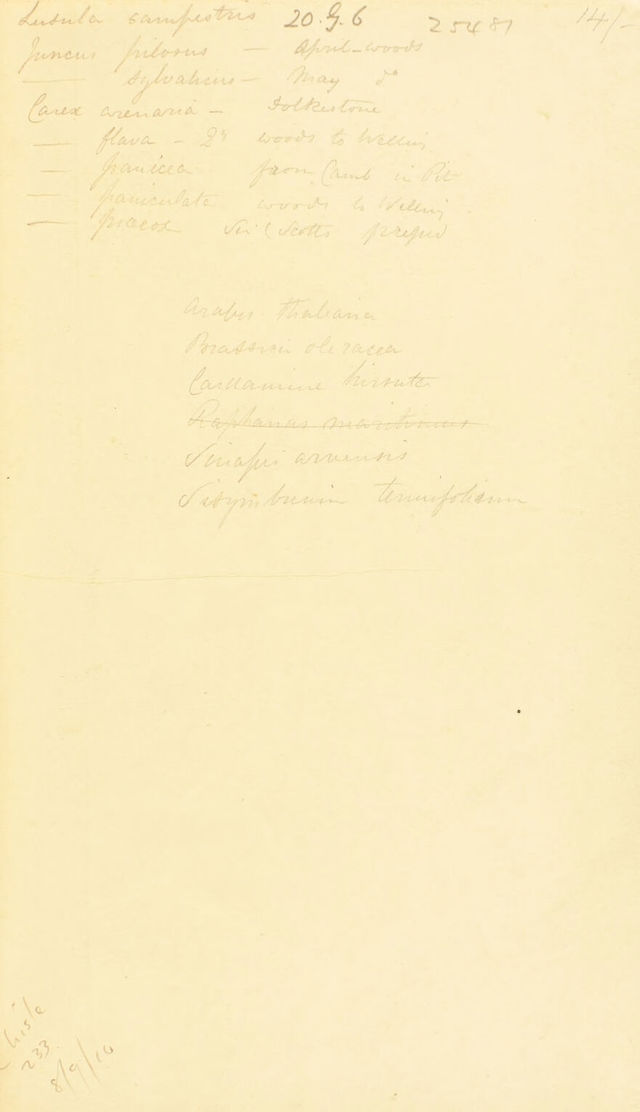 Lusula campestris 20.G.6 25481 14/-
Juncus pilosus — April - woods
—— Sylvaticus — May do
Carex arenaria — Folkestone
— flava — woods to Welling
— panicea from Camb in Pit
— paniculata woods to Welling
— praecox Scotts
Arabis thaliana
Brassica oleracea
Cardamine hirsuta
Raphanus maritimus
Sinapis arvensis
Sisymbrium tenuifolium
233
8/9/10